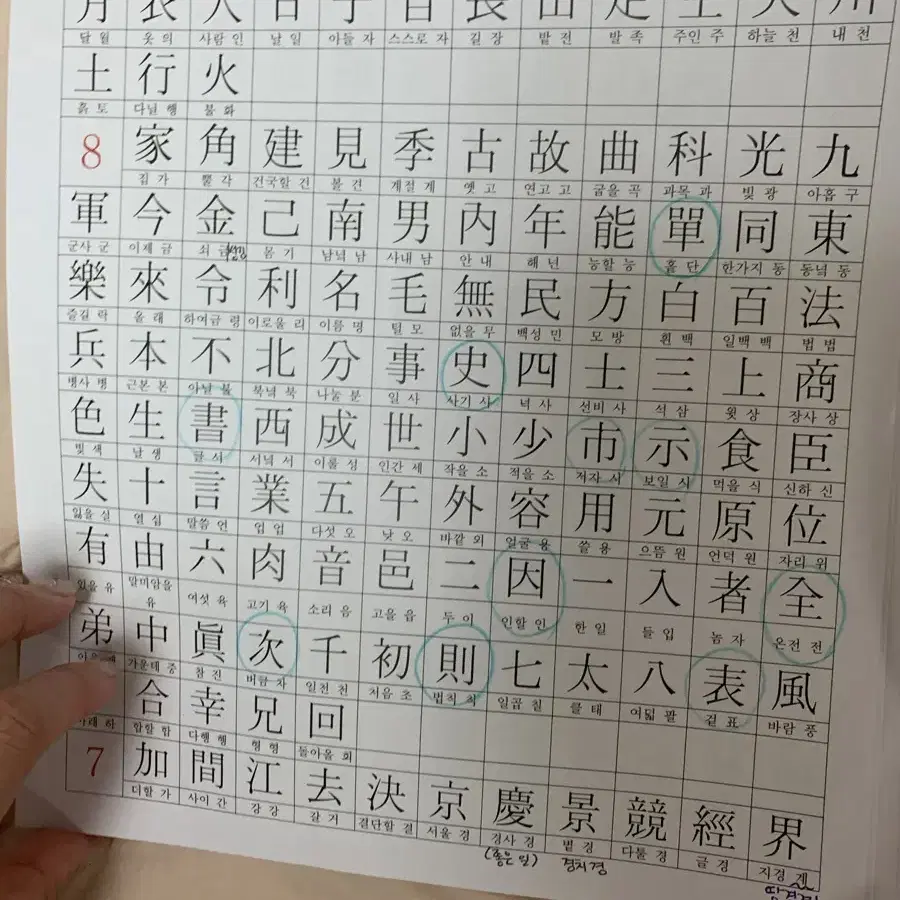 月 衣 人 日 子 自 長 田 足 主 天 川
달 월 옷 의 사람 인 날 일 아들 자 스스로 자 길 장 밭 전 발 족 주인 주 하늘 천 내 천
土 行 火
흙 토 다닐 행 불 화
8 家 角 建 見 季 古 故 曲 科 光 九
집 가 뿔 각 건국할 건 볼 견 계절 계 옛 고 연고 고 굽을 곡 과목 과 빛 광 아홉 구
軍 今 金 己 南 男 內 年 能 單 同 東
군사 군 이제 금 쇠 금 몸 기 남녘 남 사내 남 안 내 해 년 능할 능 홑 단 한가지 동 동녘 동
樂 來 令 利 名 毛 無 民 方 白 百 法
즐길 락 올 래 하여금 령 이로울 리 이름 명 털 모 없을 무 백성 민 모 방 흰 백 일백 백 법 법
兵 本 不 北 分 事 史 四 士 三 上 商
병사 병 근본 본 아닐 불 북녘 북 나눌 분 일 사 사기 사 넉 사 선비 사 석 삼 윗 상 장사 상
色 生 書 西 成 世 小 少 市 示 食 臣
빛 색 날 생 글 서 서녘 서 이룰 성 인간 세 작을 소 적을 소 저자 시 보일 시 먹을 식 신하 신
失 十 言 業 五 午 外 容 用 元 原 位
잃을 실 열 십 말씀 언 업 업 다섯 오 낮 오 바깥 외 얼굴 용 쓸 용 으뜸 원 언덕 원 자리 위
有 由 六 肉 音 邑 二 因 一 入 者 全
있을 유 말미암을 유 여섯 육 고기 육 소리 음 고을 읍 두 이 인할 인 한 일 들 입 놈 자 온전 전
弟 中 眞 次 千 初 則 七 太 八 表 風
가운데 중 참 진 버금 차 일천 천 처음 초 법칙 칙 일곱 칠 클 태 여덟 팔 겉 표 바람 풍
合 幸 兄 回
아래 하 합할 합 다행 행 형 형 돌아올 회
7 加 間 江 去 決 京 慶 景 競 經 界
더할 가 사이 간 강 강 갈 거 결단할 결 서울 경 경사 경 볕 경 다툴 경 글 경 지경 계
(좋은 일) 경치 경